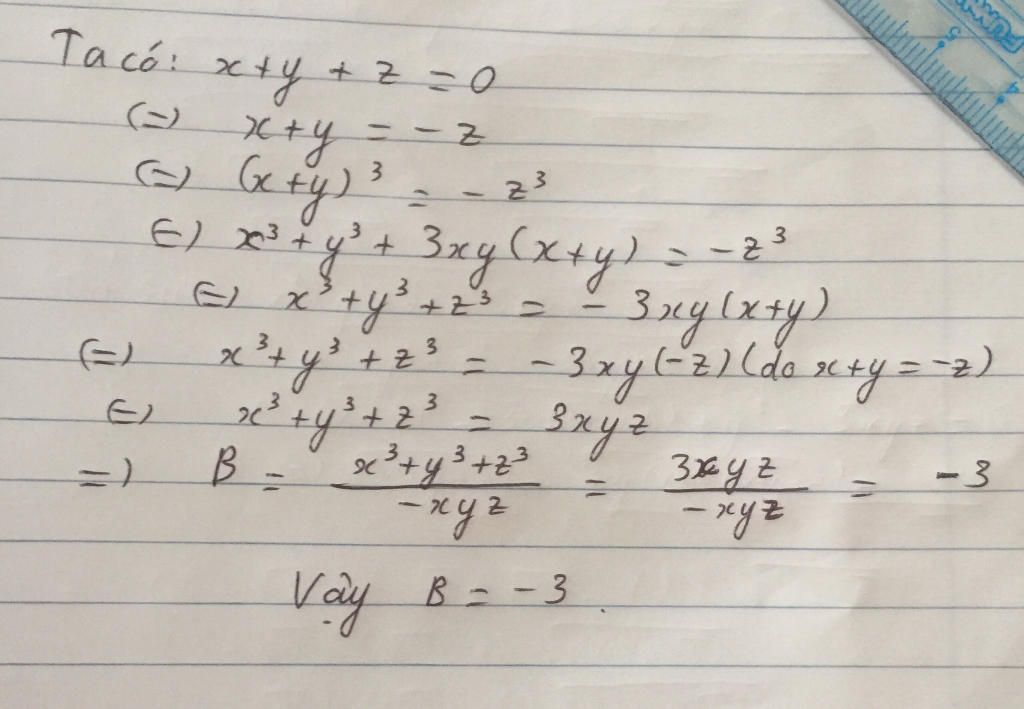 Ta có: x+y+z = 0
(=) x+y = -z
(=) (x+y)³ = -z³
(=) x³+y³+3xy(x+y) = -z³
(=) x³+y³+z³ = -3xy(x+y)
(=) x³+y³+z³ = -3xy(-z) (do x+y = -z)
(=) x³+y³+z³ = 3xyz
=) B = (x³+y³+z³)/(-xyz) = 3xyz/(-xyz) = -3
Vậy B = -3.
5
4